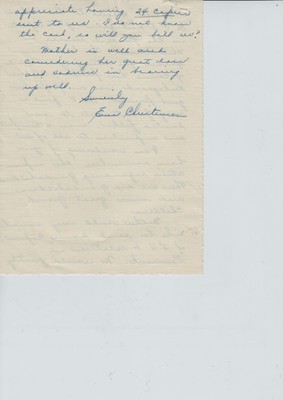 appreciate having 24 copies
sent to us. I do not know
the cost, so will you tell us?
Mother is well and
considering her great loss
and sadness is bearing
up well.
Sincerely
Christensen